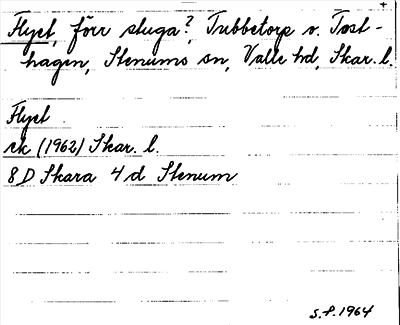 +
Flyet, förr stuga?, Tubbetorp v. Tost-
hagen, Stenums sn, Valle hd, Skar. l.
Flyet
ek (1962) Skar. l.
8 D Skara 4 d Stenum
S.F. 1964